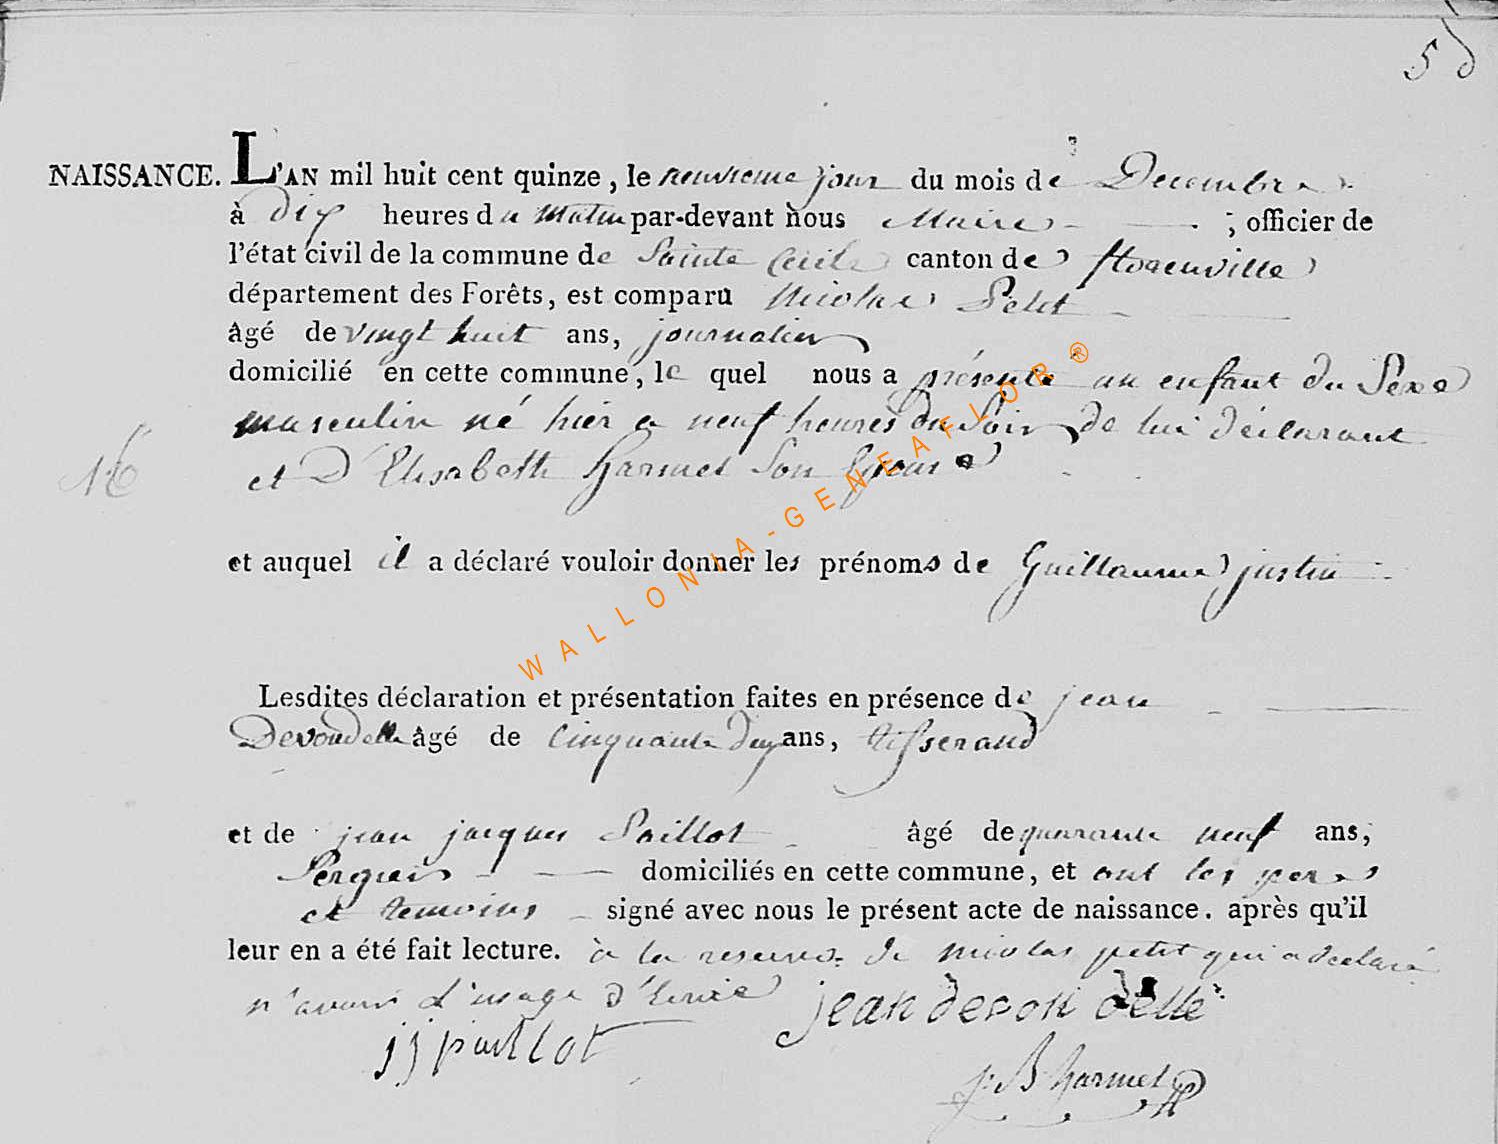 50
NAISSANCE. L'AN mil huit cent quinze, le neuvieme jour du mois de Decembre
à dix heures du matin par-devant nous Maire ; officier de
l'état civil de la commune de Sainte Cecile canton de florenville
département des Forêts, est comparu Nicolas Petit
âgé de vingt huit ans, journalier
domicilié en cette commune, le quel nous a présenté un enfant du Sexe
masculin né hier a neuf heures du Soir, de lui déclarant
16 et D'Elisabeth harmel Son Epouse
et auquel il a déclaré vouloir donner les prénoms de Guillaume justin
Lesdites déclaration et présentation faites en présence de jean
Devondelle âgé de Cinquante deux ans, tisserand
et de jean jacques Paillot âgé de quarante neuf ans,
domiciliés en cette commune, et ont les peres
et temoins signé avec nous le présent acte de naissance. après qu'il
leur en a été fait lecture. à la reserve de nicolas petit qui a declaré
n'avoir l'usage d'Ecrire jean devon delle
jj paillot
j: B harmel
WALLONIA-GENEAFLOR®